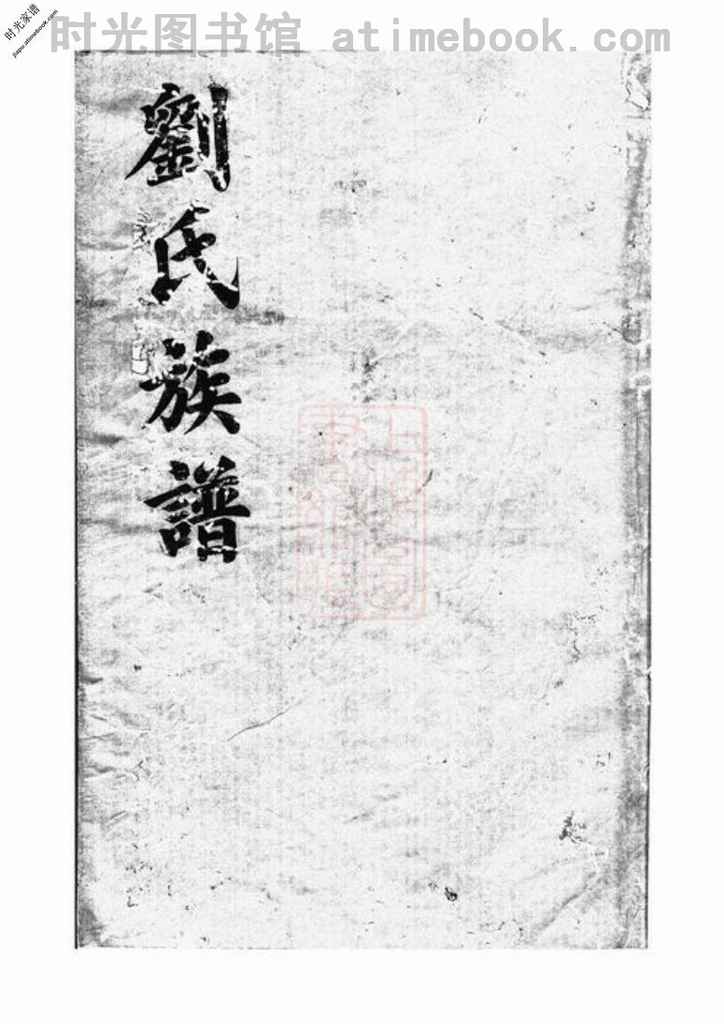 时光家谱
jiapu.atimebook.com
时光图书馆 atimebook.com
劉氏族譜